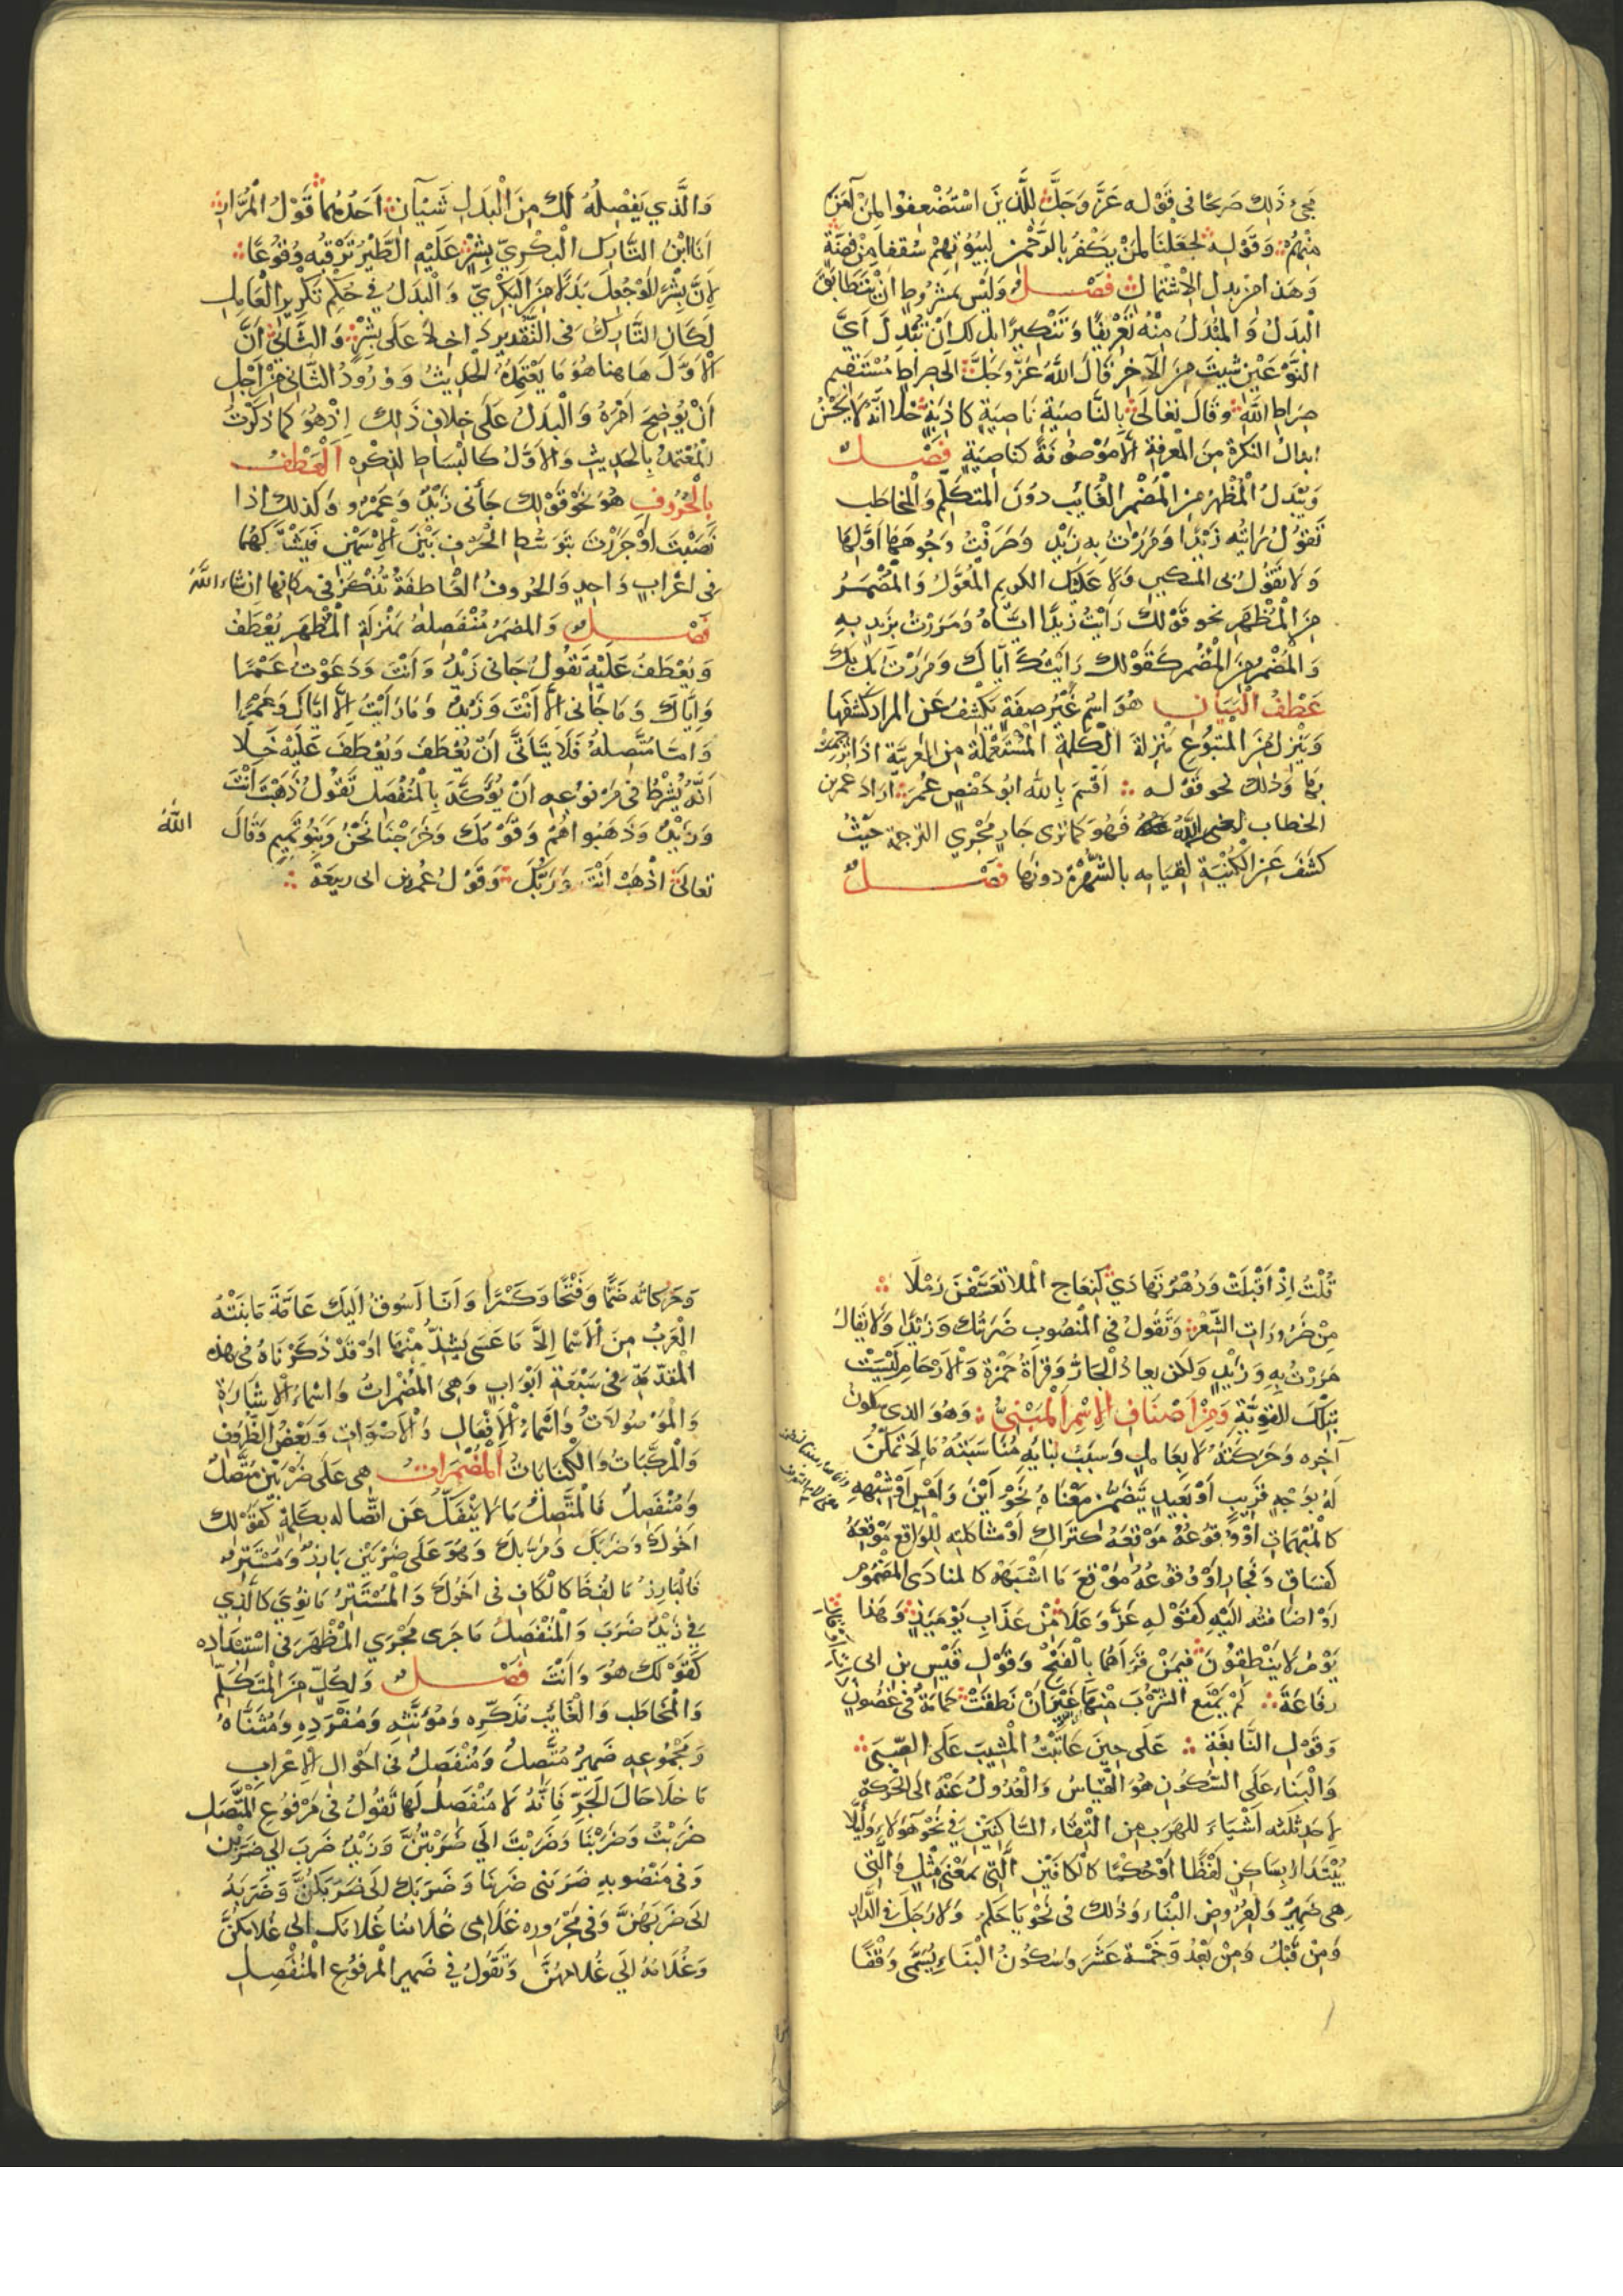 مجيء ذلك صريحا في قوله عز وجل للذين استضعفوا لمن آمن
منهم وقوله لجعلنا لمن يكفر بالرحمن لبيوتهم سقفا من فضة
وهذا من بدل الاشتمال فصل وليس بمشروط ان يتطابق
البدل والمبدل منه تعريفا وتنكيرا بل لك ان تبدل اي
النوعين شئت من الآخر قال الله عز وجل الى صراط مستقيم
صراط الله وقال تعالى بالناصية ناصية كاذبة خلا انه لا يحسن
ابدال النكرة من المعرفة الا موصوفة كناصية فصل
ويبدل المظهر من المضمر الغائب دون المتكلم والمخاطب
تقول رايته زيدا ومررت به زيد وصرفت وجوهها اولها
ولا تقول بي المسكين ولا عليك الكريم المعول والمضمر
من المظهر نحو قولك رايت زيدا اياه ومررت بزيد به
والمضمر من المضمر كقولك رايتك اياك ومررت بك بك
عطف البيان هو اسم غير صفة يكشف عن المراد كشفها
وينزل من المتبوع منزلة الكلمة المستعملة من الغريبة اذا ترجمت
بها وذلك نحو قوله اقسم بالله ابو حفص عمر اراد عمر بن
الخطاب رضي الله عنه فهو كما ترى جار مجرى الترجمة حيث
كشف عن الكنية لقيامه بالشهرة دونها فصل
والذي يفصله لك من البدل شيآن احدهما قول المرار
انا ابن التارك البكري بشر عليه الطير ترقبه وقوعا
لان بشرا لو جعل بدلا من البكري والبدل في حكم تكرير العامل
لكان التارك في التقدير داخلا على بشر والثاني ان
الاول هاهنا هو ما يعتمده الحديث وورود الثاني من اجل
ان يوضح امره والبدل على خلاف ذلك اذ هو كما ذكرت
المعتمد بالحديث والاول كالبساط لذكره العطف
بالحروف هو نحو قولك جاءني زيد وعمرو وكذلك اذا
نصبت او جررت بتوسط الحرف بين الاسمين فيشركهما
في اعراب واحد والحروف العاطفة تذكر في مكانها ان شاء الله
فصل والمضمر منفصله بمنزلة المظهر يعطف
ويعطف عليه تقول جاني زيد وانت ودعوت عمرا
واياك وما جاني الا انت وزيد وما رايت الا اياك وعمرا
واما متصله فلا يتأتى ان يعطف ويعطف عليه خلا
انه يشرط في مرفوعه ان يؤكد بالمنفصل تقول ذهبت انت
وزيد وذهبوا هم وقومك وخرجنا نحن وبنو تميم وقال
الله
تعالى اذهب انت وربك وقول عمر بن ابي ربيعة
قلت اذ اقبلت وزهر تهادى كنعاج الملا تعسفن رملا
من ضرورات الشعر وتقول في المنصوب ضربتك وزيدا ولا يقال
مررت به وزيد ولكن يعاد الجار وقراة حمزة والارحام ليست
بتلك القوية ومن اصناف الاسم المبني وهو الذي سكون
آخره وحركته لا بعامل وسبب بنائه مناسبته ما لا تمكن
له بوجه قريب او بعيد بتضمن معناه نحو اين وامس او شبهه
كالمبهمات او وقوعه موقعه كتراك او مشاكلته للواقع موقعه
كفساق وفجار او وقوعه موقع ما اشبهه كالمنادى المضموم
او اضافته اليه كقوله عز وعلا من عذاب يومئذ وهذا
يوم لا ينطقون فيمن قراهما بالفتح وقول قيس بن ابي
رفاعة لم يمنع الشرب منها غير ان نطقت حمامة في غصون
وقول النابغة على حين عاتبت المشيب على الصبى
والبناء على السكون هو القياس والعدول عنه الى الحركة
لاحد ثلثة اشياء للهرب من التقاء الساكنين في نحو هؤلاء ولئلا
يبتدأ بساكن لفظا او حكما كالكافين التي بمعنى مثل والتي
هي ضمير ولعروض البناء وذلك في نحو يا حكم ولا رجل في الدار
ومن قبل ومن بعد وخمسة عشر وسكون البناء يسمى وقفا
وحركاته ضما وفتحا وكسرا وانا اسوق اليك عامة ما بنته
العرب من الاسما الا ما عسى يشذ منها او قد ذكرناه في هذه
المقدمة في سبعة ابواب وهي المضمرات واسماء الاشارة
والموصولات واسماء الافعال والاصوات وبعض الظروف
والمركبات والكنايات المضمرات هي على ضربين متصل
ومنفصل فالمتصل ما لا ينفك عن اتصاله بكلمة كقولك
اخوك وضربك ومر بك وهو على ضربين بارز ومستتر
فالبارز ما لفظ كالكاف في اخوك والمستتر ما نوي كالذي
في زيد ضرب والمنفصل ما جرى مجرى المظهر في استبداده
كقولك هو وانت فصل ولكل من المتكلم
والمخاطب والغائب مذكره ومؤنثه ومفرده ومثناه
ومجموعه ضمير متصل ومنفصل في احوال الاعراب
ما خلا حال الجر فانه لا منفصل لها تقول في مرفوع المتصل
ضربت وضربنا وضربت الى ضربتن وزيد ضرب الى ضربن
وفي منصوبه ضربني ضربنا وضربك الى ضربكن وضربه
الى ضربهن وفي مجروره غلامي غلامنا غلامك الى غلامكن
وغلامه الى غلامهن وتقول في ضمير المرفوع المنفصل